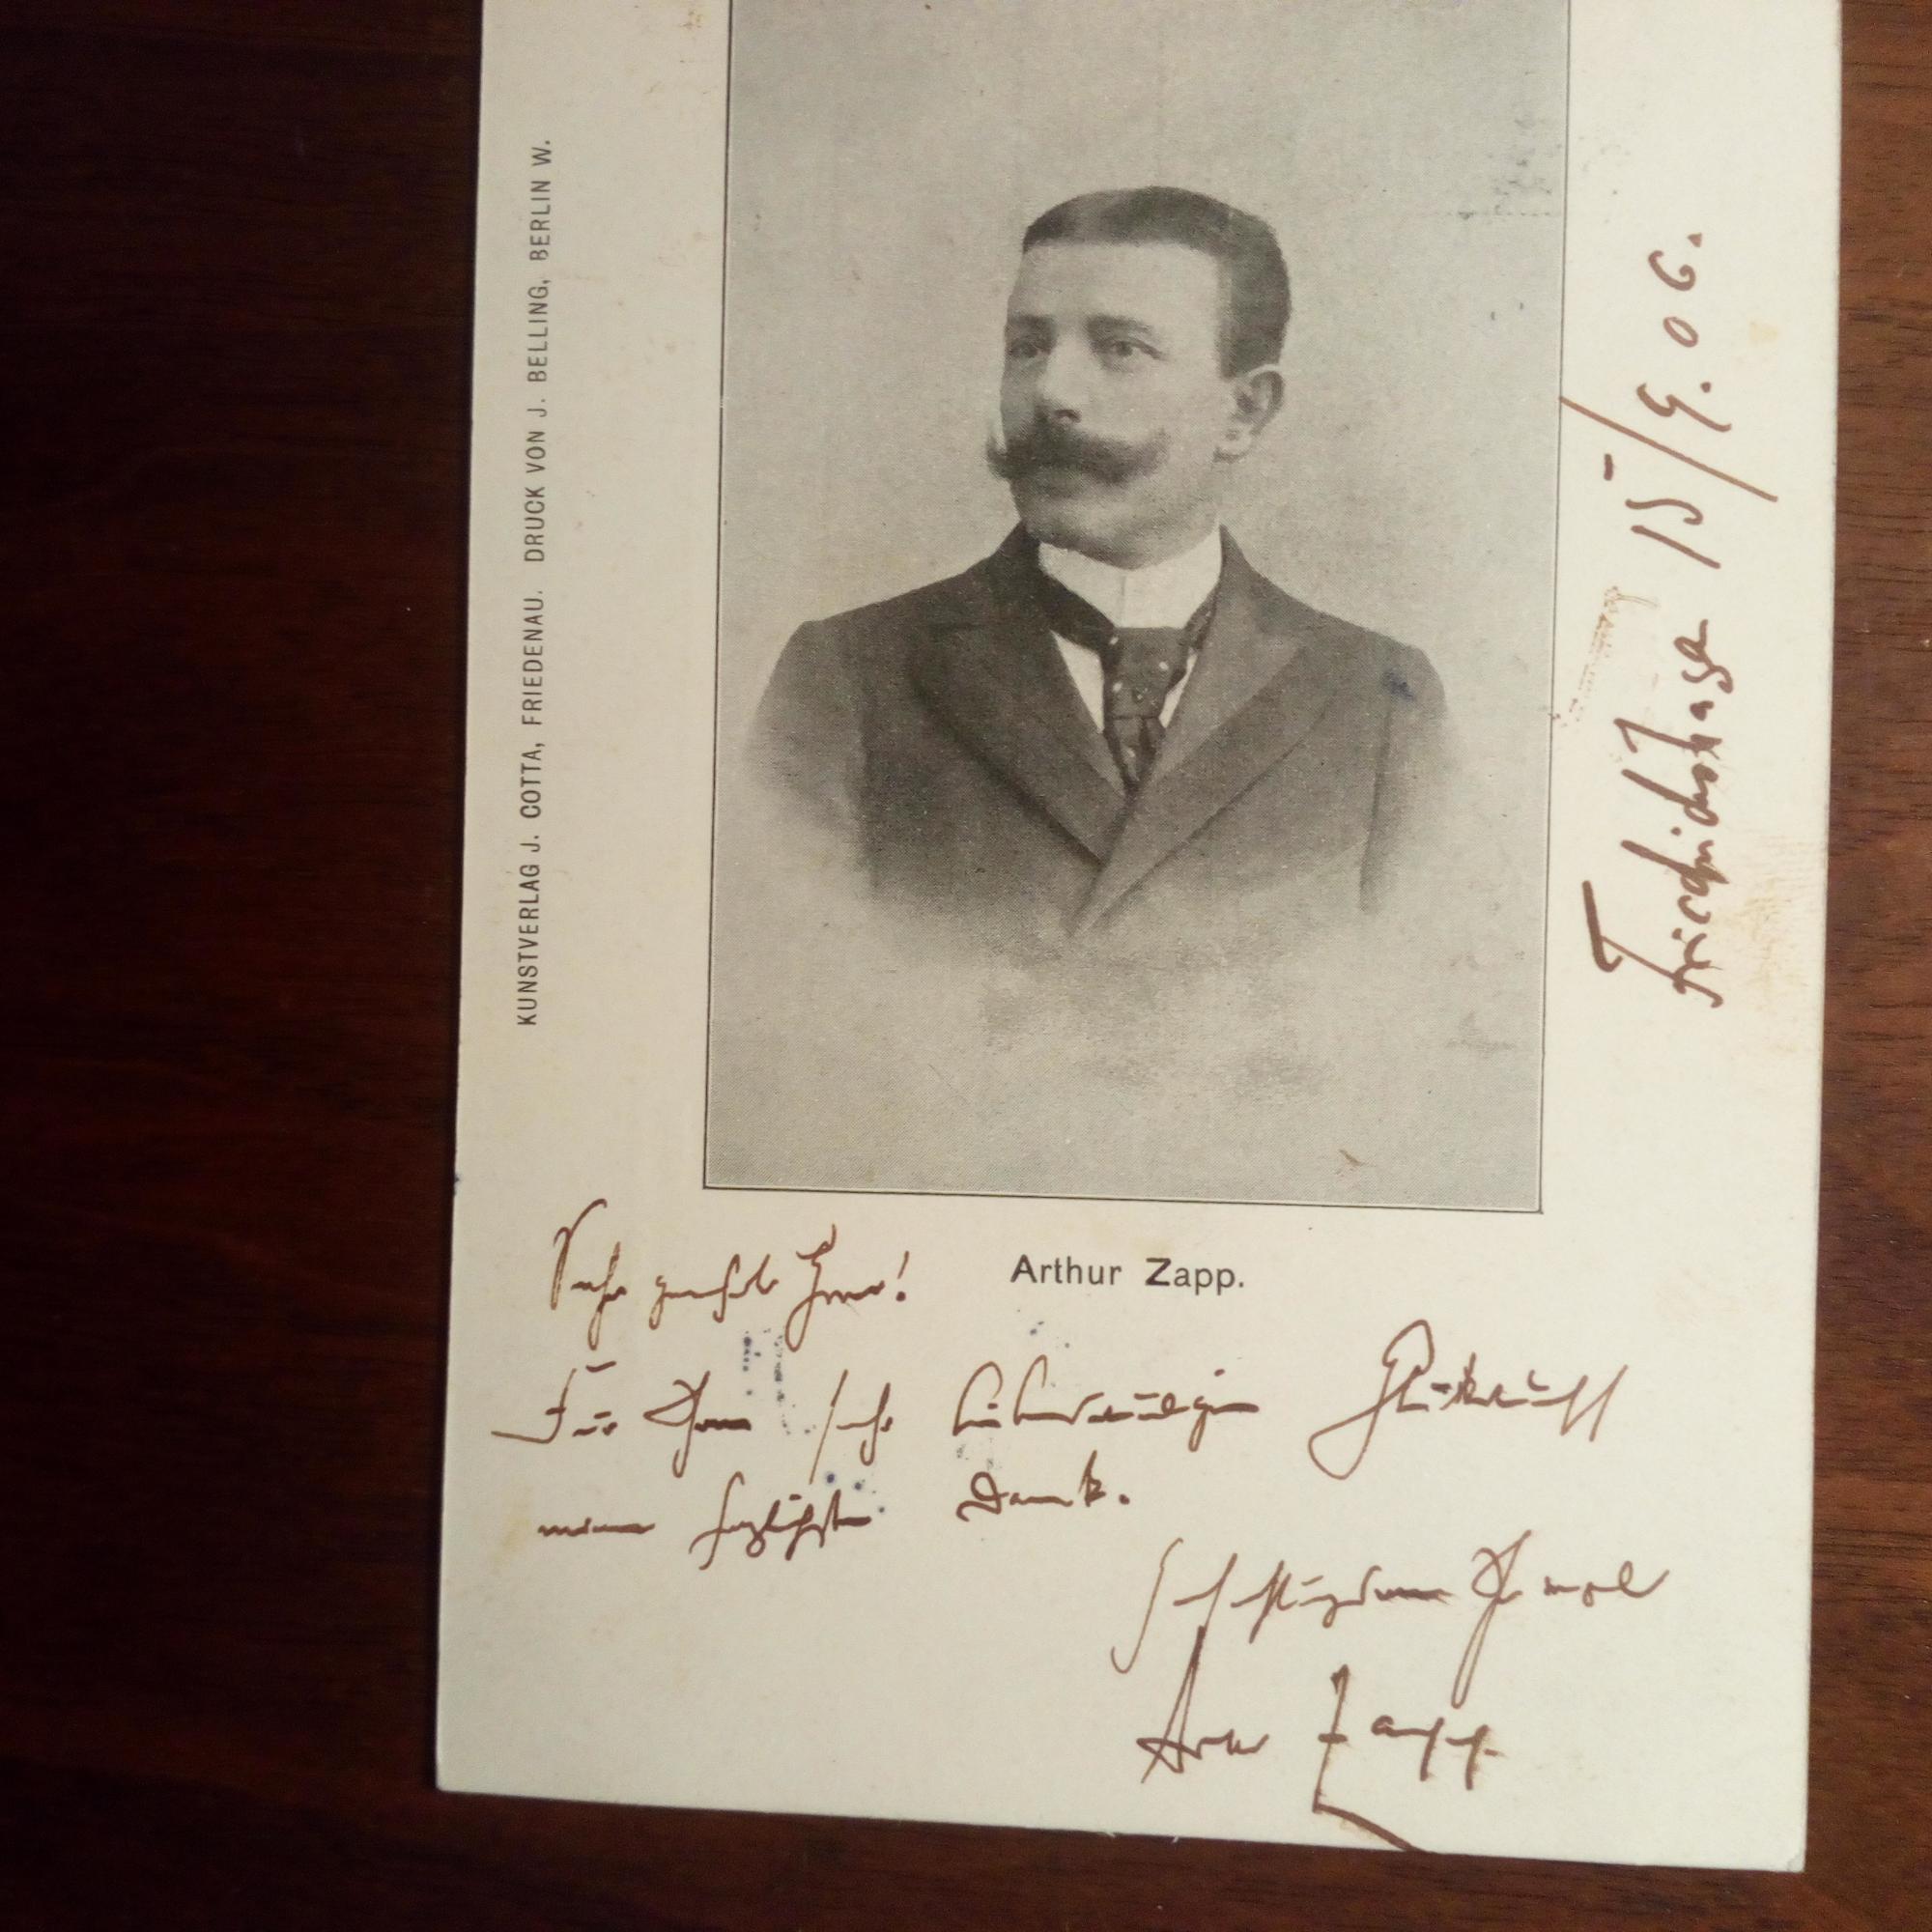 KUNSTVERLAG J. COTTA, FRIEDENAU. DRUCK VON J. BELLING, BERLIN W.
Friedrichshagen 15/9.06.
Arthur Zapp.
Sehr geehrter Herr!
Für Ihren sehr liebenswürdigen
meinen herzlichsten Dank.
Arthur Zapp.